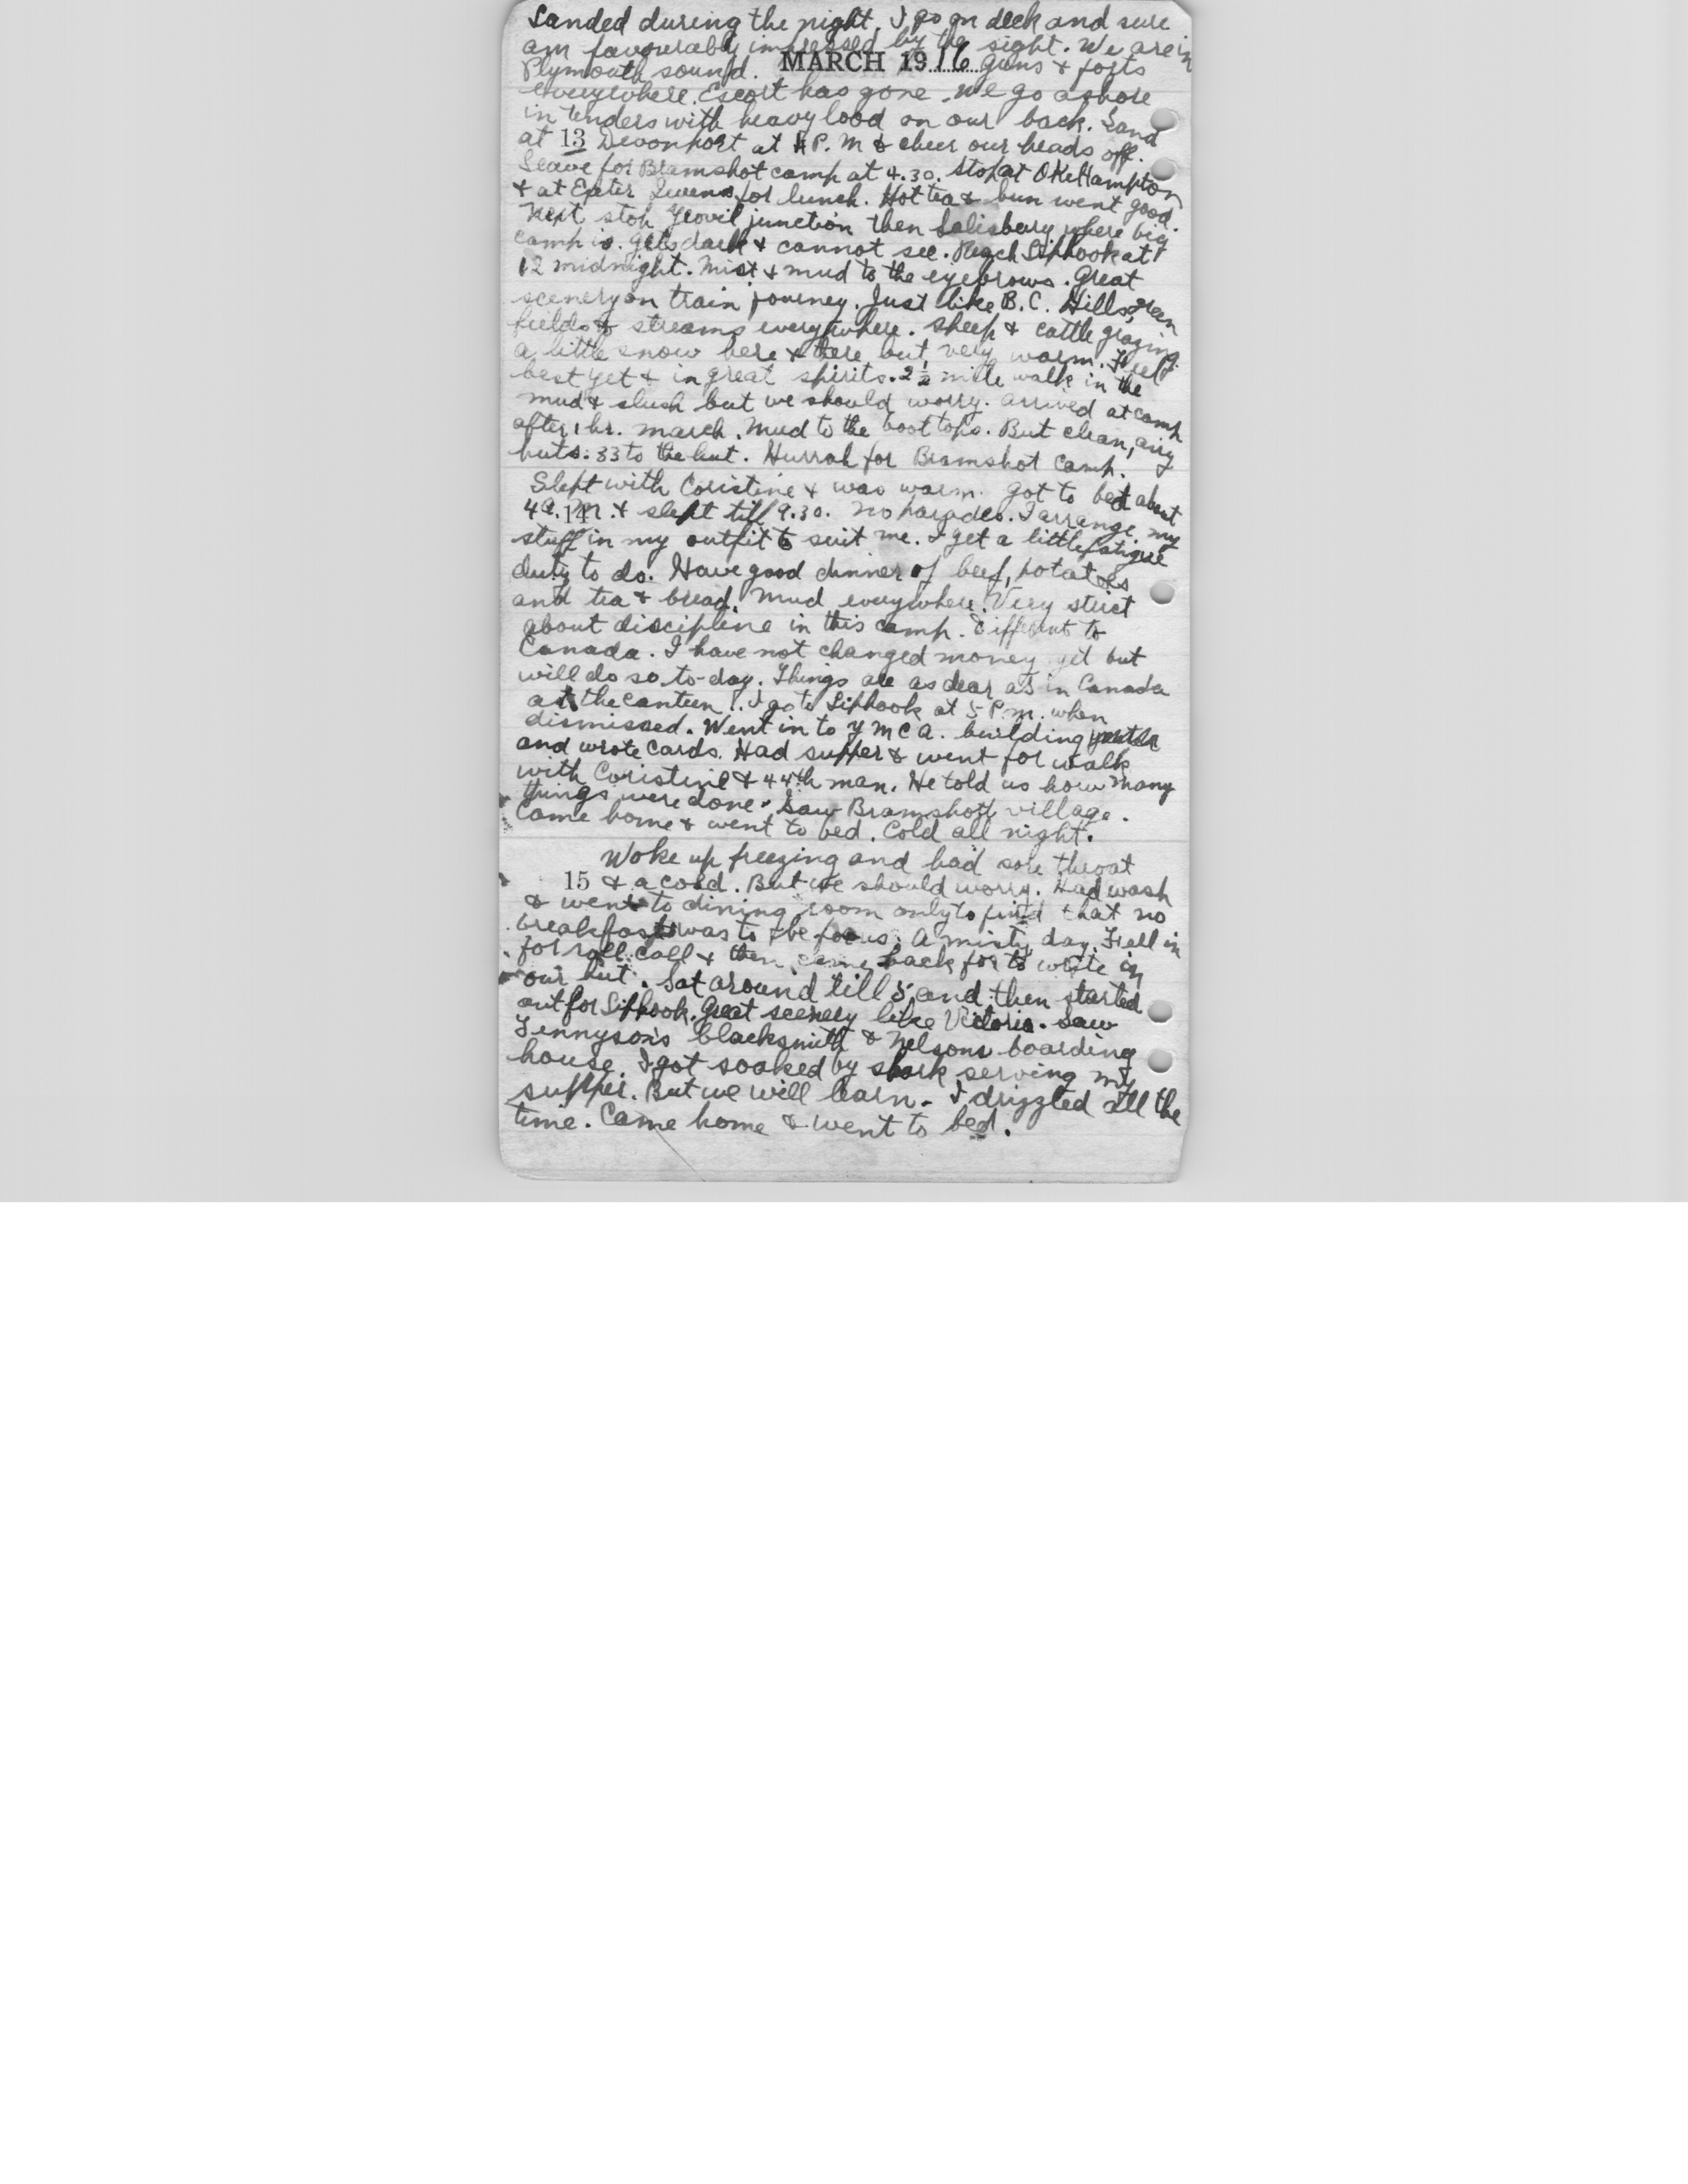 Landed during the night. I go on deck and sure
am favourably impressed by the sight. We are in
Plymouth sound. MARCH 1916 guns & forts
everywhere. Escort has gone. We go ashore
in tenders with heavy load on our back. Land
at 13 Devonport at 4 P.M & cheer our heads off.
Leave for Bramshot camp at 4.30. Stop at OKeHampton
& at Exeter for lunch. Hot tea & bun went good.
Next stop Yeovil junction then Salisbury where big
camp is. Gets dark & cannot see. Reach Liphook at
12 midnight. Mist & mud to the eyebrows. Great
scenery on train journey. Just like B.C. Hills, green
fields & streams everywhere. Sheep & cattle grazing
a little snow here & there but very warm. Feel
best yet & in great spirits. 2½ mile walk in the
mud & slush but we should worry. arrived at camp
after 1 hr. march. Mud to the boot tops. But clean, airy
huts. 33 to the hut. Hurrah for Bramshot Camp.
Slept with Coristine & was warm. got to bed about
4 a.m. 14 & slept till 9.30. No parades. I arrange my
stuff in my outfit to suit me. I get a little fatigue
duty to do. Have good dinner of beef, potatoes
and tea & bread. Mud everywhere. Very strict
about discipline in this camp. Different to
Canada. I have not changed money yet but
will do so to-day. Things are as dear as in Canada
at the canteen. I go to Liphook at 5 P.m. when
dismissed. Went in to Y M C A. building
and wrote cards. Had supper & went for walk
with Coristine & 44th man. He told us how many
things were done. Saw Bramshott village.
Came home & went to bed. Cold all night.
Woke up freezing and had sore throat
15 & a cold. But we should worry. Had wash
& went to dining room only to find that no
breakfast was to be for us. A misty day. Fell in
for roll call & then came back for to write in
our hut. Sat around till 5 and then started
out for Liphook. Great scenery like Victoria. Saw
Tennyson's blacksmith & Nelsons boarding
house. I got soaked by shark serving my
supper. But we will learn. I drizzled all the
time. Came home & went to bed.